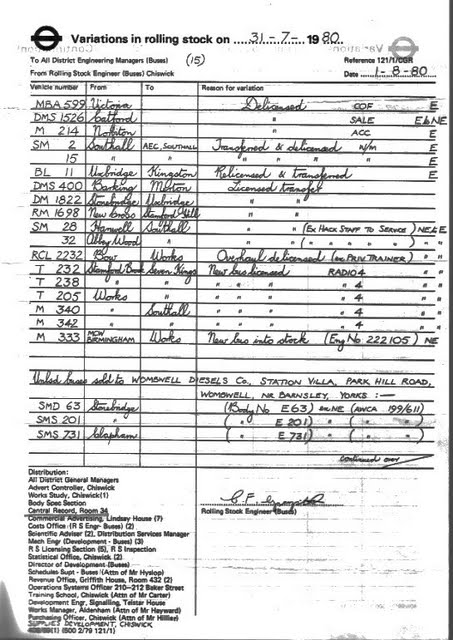 Variations in rolling stock on 31-7-1980
To All District Engineering Managers (Buses) (15) Reference 121/1/CGR
From Rolling Stock Engineer (Buses) Chiswick Date 1-8-80
Vehicle number From To Reason for variation
MBA 599 Victoria Delicensed COF E
DMS 1526 Catford " SALE E b NE
M 214 Norbiton " ACC E
SM 2 Southall AEC, SOUTHALL Transferred & delicensed n/m E
15 " " " " " E
BL 11 Uxbridge Kingston Relicensed & transferred E
DMS 400 Barking Merton Licensed transfer
DM 1822 Stonebridge Uxbridge " "
RM 1698 New Cross Stamford Hill " "
SM 28 Hanwell Southall " " (Ex Hack Staff to Service) NE & E
32 Abbey Wood " " " ( " " " " ) " "
RCL 2232 Bow Works Overhaul delicensed (ex PRIV TRAINER) " "
T 232 Stamford Brook Seven Kings New bus licensed RADIO 4 " "
T 238 " " " " " " 4 " "
T 205 Works " " " " " 4 " "
M 340 " Southall " " " " 4 " "
M 342 " " " " " " 4 " "
M 333 MCW BIRMINGHAM Works New bus into stock (Eng No 222105) NE
Unlsd buses sold to WOMBWELL DIESELS Co., STATION VILLA, PARK HILL ROAD,
WOMBWELL, NR BARNSLEY, YORKS :—
SMD 63 Stonebridge (Body No E63) NE (AWCA 199/611)
SMS 201 " ( " E 201) " ( " " )
SMS 731 Clapham ( " E 731) " ( " " )
continued over
Distribution:
All District General Managers
Advert Controller, Chiswick
Works Study, Chiswick(1)
Body Spec Section
Central Record, Room 34
Rolling Stock Engineer (Buses)
Commercial Advertising, Lindsay House (7)
Costs Office (R S Engr- Buses) (2)
Scientific Adviser (2), Distribution Services Manager
Mech Engr (Development - Buses) (3)
R S Licensing Section (5), R S Inspection
Statistical Office, Chiswick (2)
Director of Development (Buses)
Schedules Supt - Buses (Attn of Mr Hyslop)
Revenue Office, Griffith House, Room 432 (2)
Operations Systems Officer 210-212 Baker Street
Training School, Chiswick (Attn of Mr Carter)
Development Engr, Signalling, Telstar House
Works Manager, Aldenham (Attn of Mr Hayward)
Purchasing Officer, Chiswick (Attn of Mr Hillier)
SUPPLIES DEVELOPMENT, CHISWICK
(500 2/79 121/1)